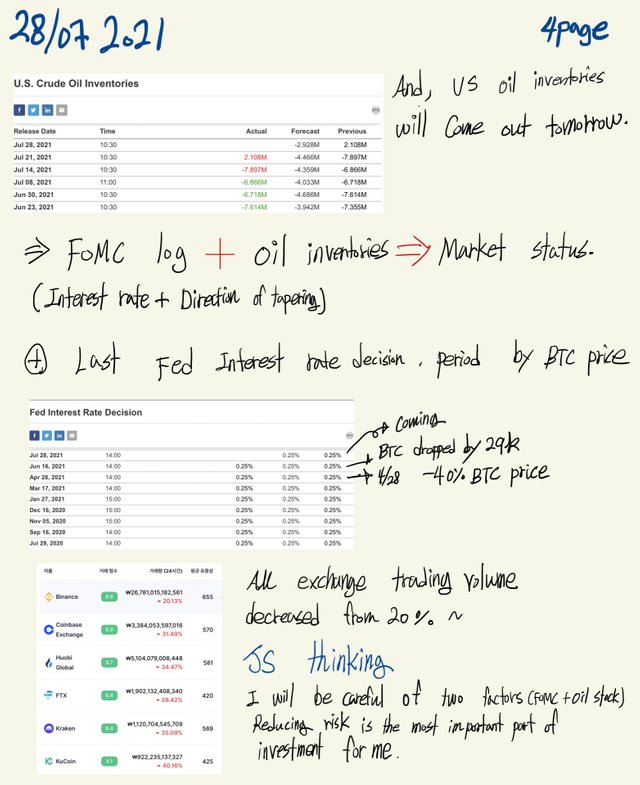 28/07 2021
4page
U.S. Crude Oil Inventories
And, US oil inventories
will Come out tomorrow.
Release Date Time Actual Forecast Previous
Jul 28, 2021 10:30 -2.928M 2.108M
Jul 21, 2021 10:30 2.108M -4.466M -7.897M
Jul 14, 2021 10:30 -7.897M -4.359M -6.866M
Jul 08, 2021 11:00 -6.866M -4.033M -6.718M
Jun 30, 2021 10:30 -6.718M -4.686M -7.614M
Jun 23, 2021 10:30 -7.614M -3.942M -7.355M
⇒ FOMC log + Oil inventories ⇒ Market status.
(Interest rate + Direction of tapering)
⊕ Last Fed Interest rate decision. period by BTC price
Fed Interest Rate Decision
Jul 28, 2021 14:00 0.25% 0.25% → Coming
Jun 16, 2021 14:00 0.25% 0.25% 0.25% → BTC dropped by 29k
Apr 28, 2021 14:00 0.25% 0.25% 0.25% → 4/28 -40% BTC price
Mar 17, 2021 14:00 0.25% 0.25% 0.25%
Jan 27, 2021 15:00 0.25% 0.25% 0.25%
Dec 16, 2020 15:00 0.25% 0.25% 0.25%
Nov 05, 2020 15:00 0.25% 0.25% 0.25%
Sep 16, 2020 14:00 0.25% 0.25% 0.25%
Jul 29, 2020 14:00 0.25% 0.25% 0.25%
이름 거래 점수 거래량 (24시간) 평균 유동성
Binance 9.9 ₩26,781,015,182,561 655
20.13%
Coinbase Exchange 8.9 ₩3,384,053,597,016 570
31.49%
Huobi Global 8.7 ₩5,104,079,008,448 581
34.47%
FTX 8.4 ₩1,902,132,408,340 420
28.42%
Kraken 8.4 ₩1,120,704,545,709 569
35.09%
KuCoin 8.1 ₩922,235,137,327 425
40.16%
All exchange trading volume
decreased from 20% ~
JS thinking
I will be careful of two factors (FOMC + Oil stack)
Reducing risk is the most important part of
investment for me.